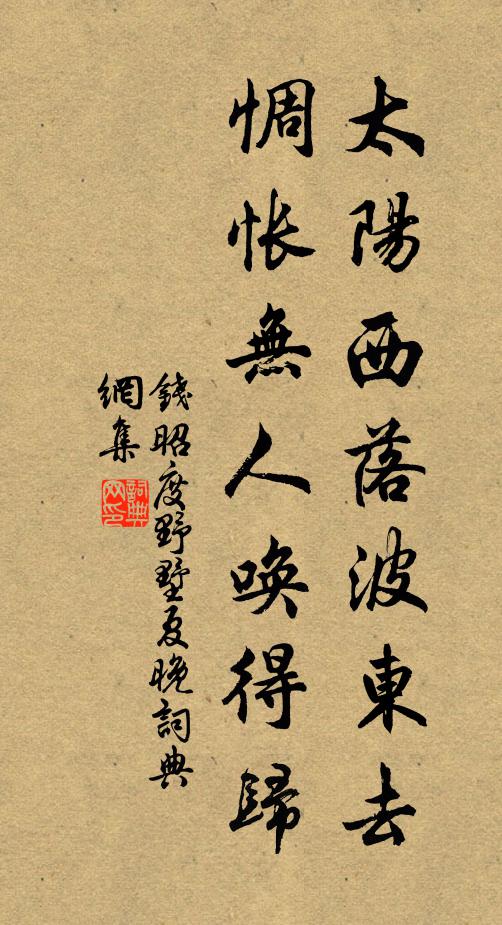 太陽西落波東去
惆悵無人喚得歸
錢昭度野墅夏晚詞典
網集
詞典
網印